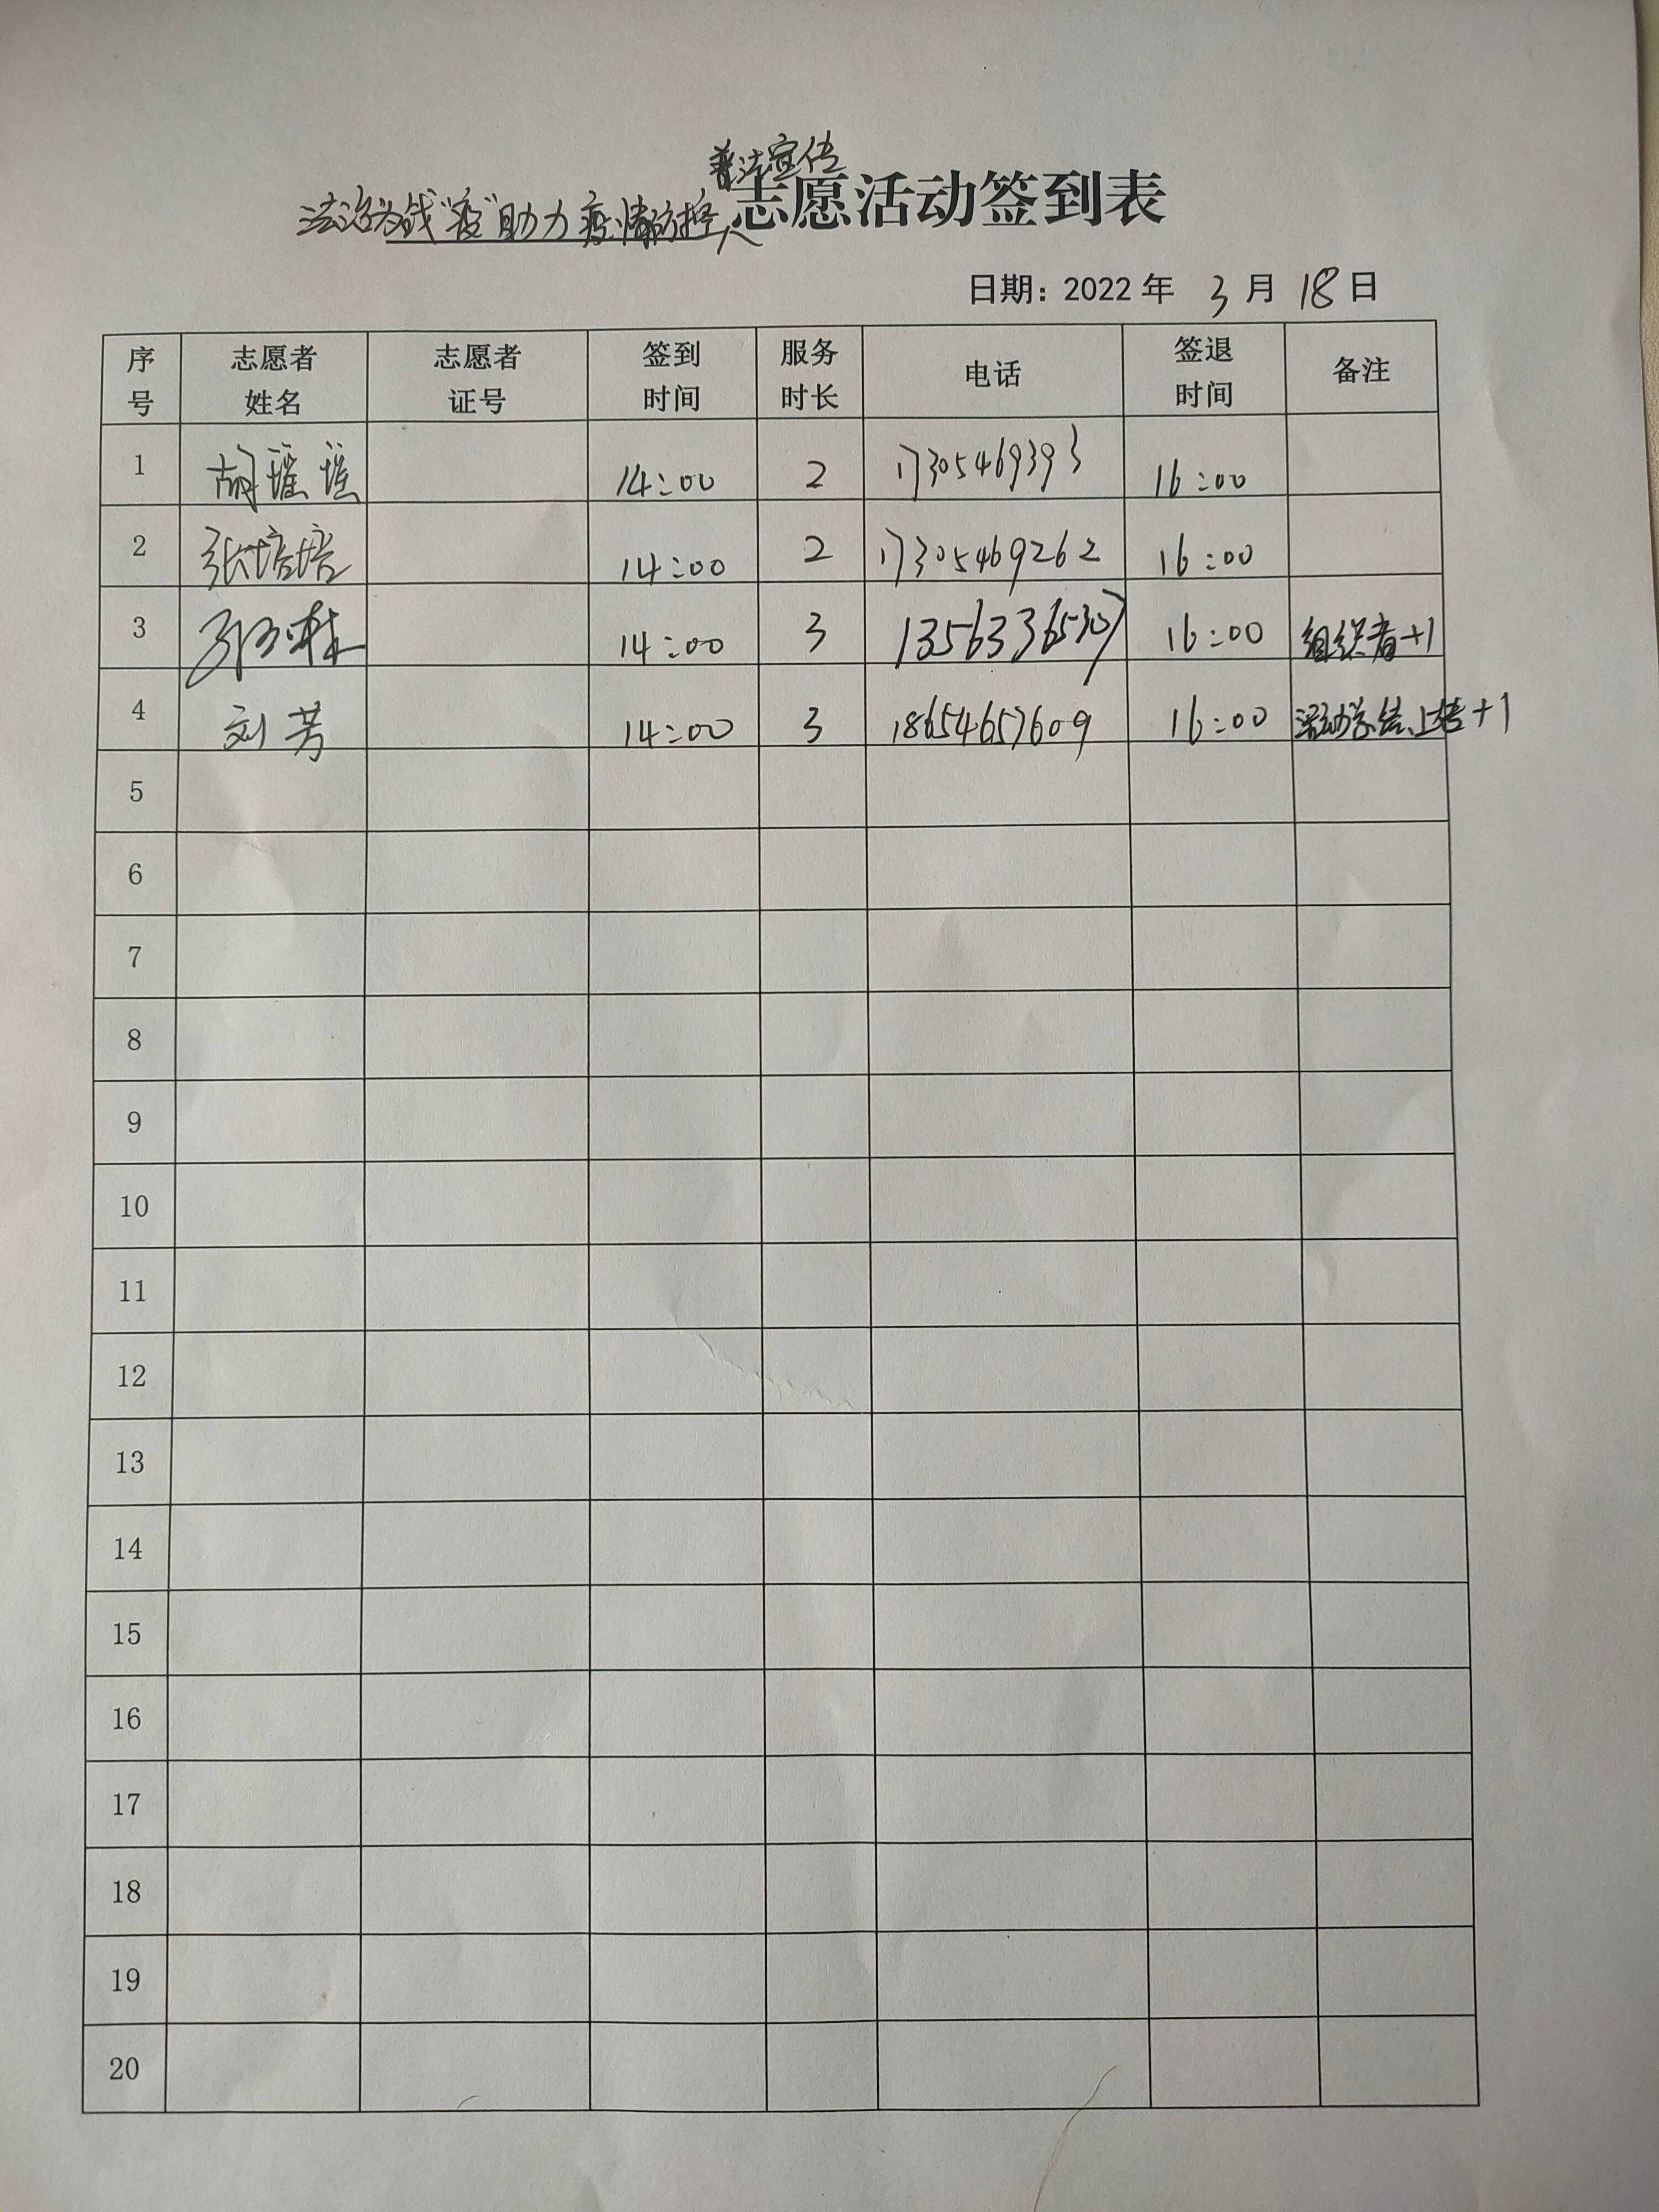 普法宣传
法治为战"疫"助力疫情防控 志愿活动签到表
日期：2022 年 3 月 18 日
序号 志愿者姓名 志愿者证号 签到时间 服务时长 电话 签退时间 备注
1 胡瑶瑶 14:00 2 17305469393 16:00
2 张培培 14:00 2 17305469262 16:00
3 14:00 3 13563365307 16:00 组织者+1
4 刘芳 14:00 3 18654657609 16:00 活动总结、上传+1
5
6
7
8
9
10
11
12
13
14
15
16
17
18
19
20